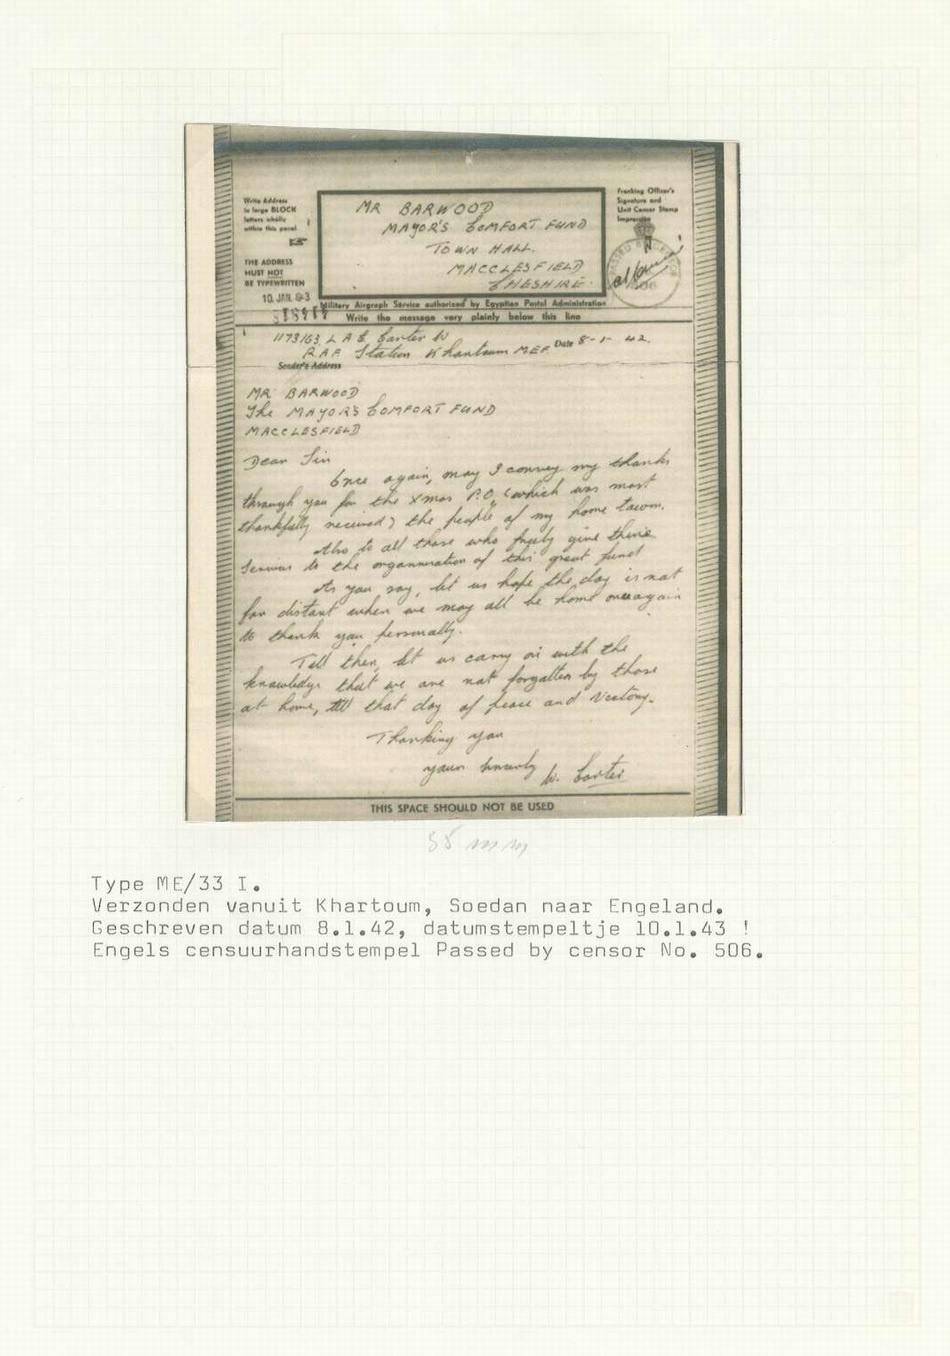 Write Address
in large BLOCK
letters wholly
within this panel
THE ADDRESS
MUST NOT
BE TYPEWRITTEN
10. JAN. 43
MR BARWOOD
MAYOR'S COMFORT FUND
TOWN HALL.
MACCLESFIELD
CHESHIRE
Franking Officer's
Signature and
Unit Censor Stamp
Impression
Military Airgraph Service authorized by Egyptian Postal Administration
Write the message very plainly below this line
1173163 L A C Carter W
R.A.F Station Khartoum MEF Date 8-1-42.
Sender's Address
MR BARWOOD
The MAYORS COMFORT FUND
MACCLESFIELD
Dear Sir
Once again, may I convey my thanks
through you for the Xmas P.O. (which was most
thankfully received) the people of my home town.
Also to all those who freely give their
to the organisation of this great fund
As you say, let us hope the day is not
far distant when we may all be home once again
to thank you personally.
Till then, let us carry on with the
knowledge that we are not forgotten by those
at home, till that day of peace and Victory.
Thanking you
yours sincerely W. Carter
THIS SPACE SHOULD NOT BE USED
35 mm
Type ME/33 I.
Verzonden vanuit Khartoum, Soedan naar Engeland.
Geschreven datum 8.1.42, datumstempeltje 10.1.43 !
Engels censuurhandstempel Passed by censor No. 506.